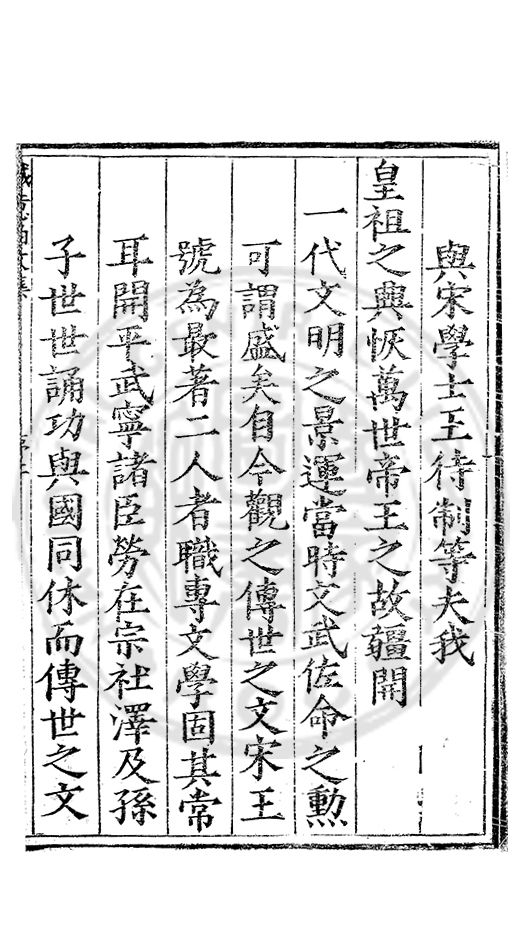 與宋學士王待制等夫我
皇祖之興恢萬世帝王之故疆開
一代文明之景運當時文武佐命之勳
可謂盛矣自今觀之傳世之文宋王
號為最著二人者職專文學固其常
耳開平武寧諸臣勞在宗社澤及孫
子世世誦功與國同休而傳世之文